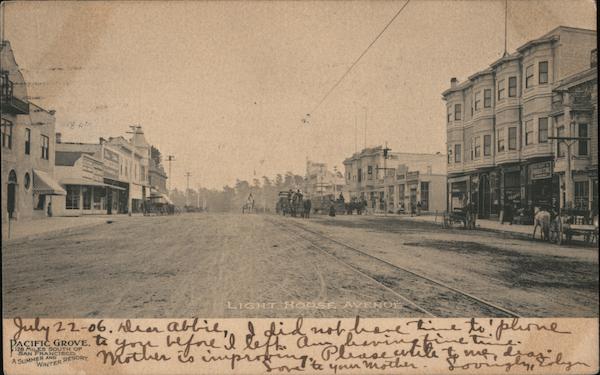 LIGHT HOUSE AVENUE
July 22-06. Dear Abbie, I did not have time to 'phone
PACIFIC GROVE,
128 MILES SOUTH OF
SAN FRANCISCO.
A SUMMER AND
WINTER RESORT.
to you before I left. Am having fine time.
Mother is improving. Please write to me, dear.
Love to your Mother. Lovingly, Evelyn